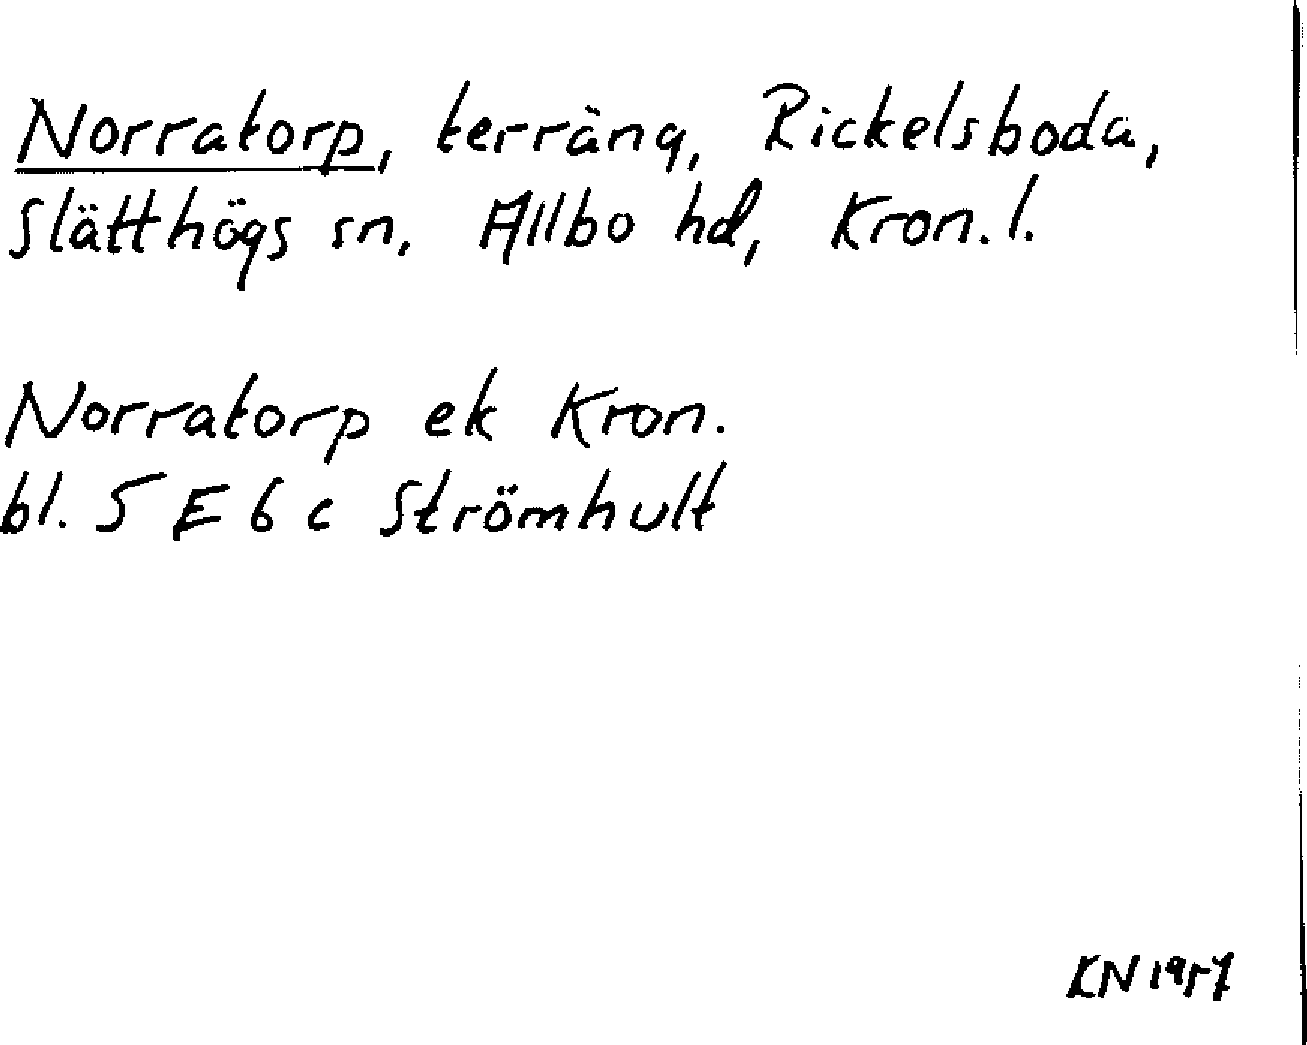 Norratorp, terräng, Rickelsboda,
Slätthögs sn, Allbo hd, Kron. l.
Norratorp ek Kron.
bl. 5 E 6 c Strömhult
KN 1957